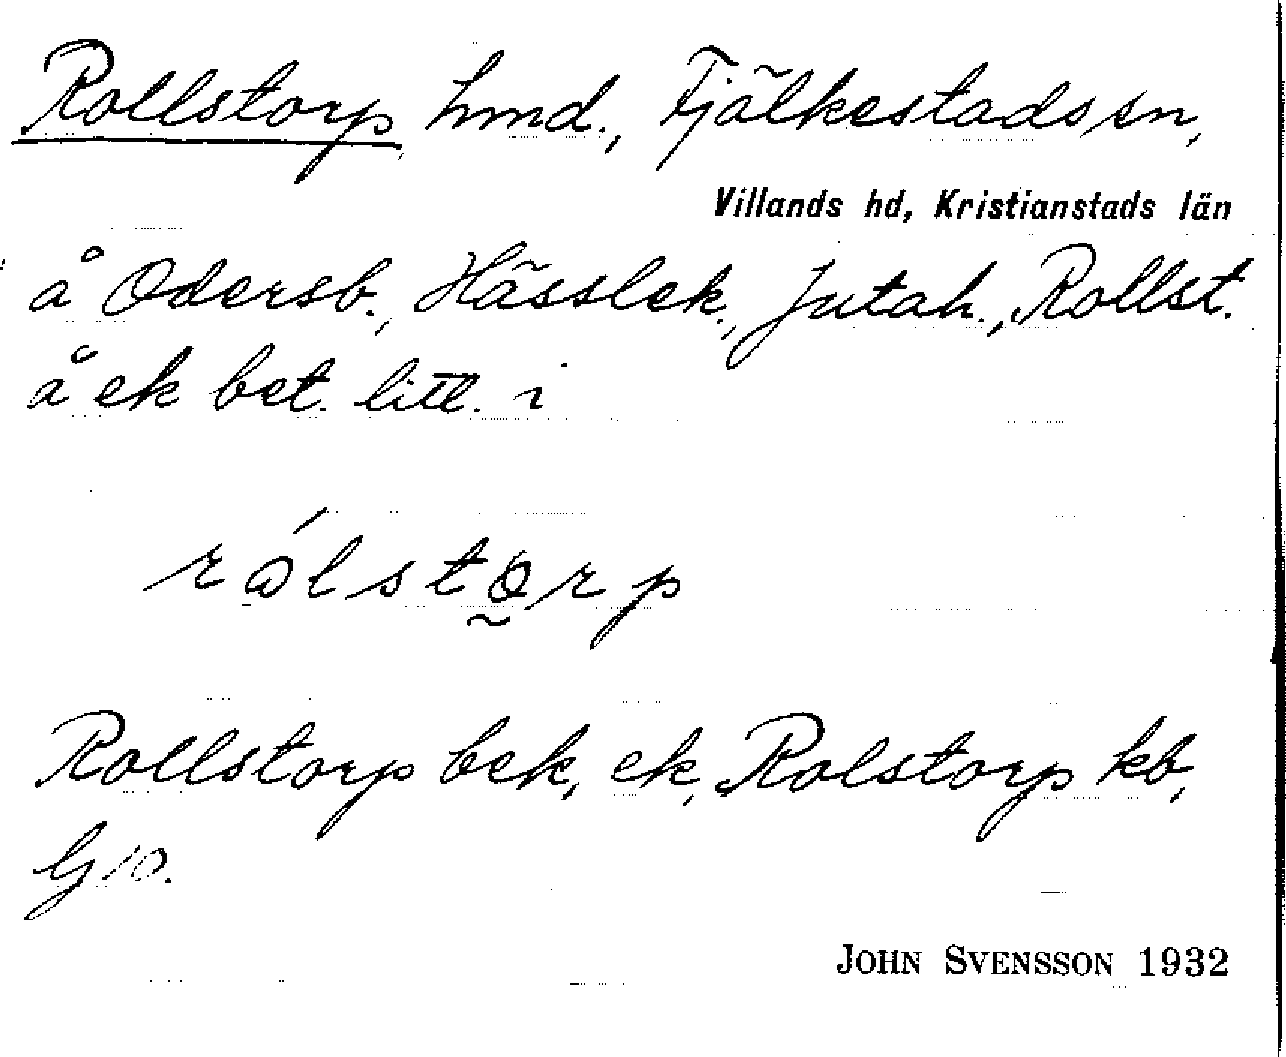 Rollstorp hmd., Fjälkestads sn,
Villands hd, Kristianstads län
å Odersb., Hässlek., Jutah., Rollst.
å ek bet. litt. i
rålstorp
Rollstorp bek, ek, Rolstorp kb,
G 10.
JOHN SVENSSON 1932